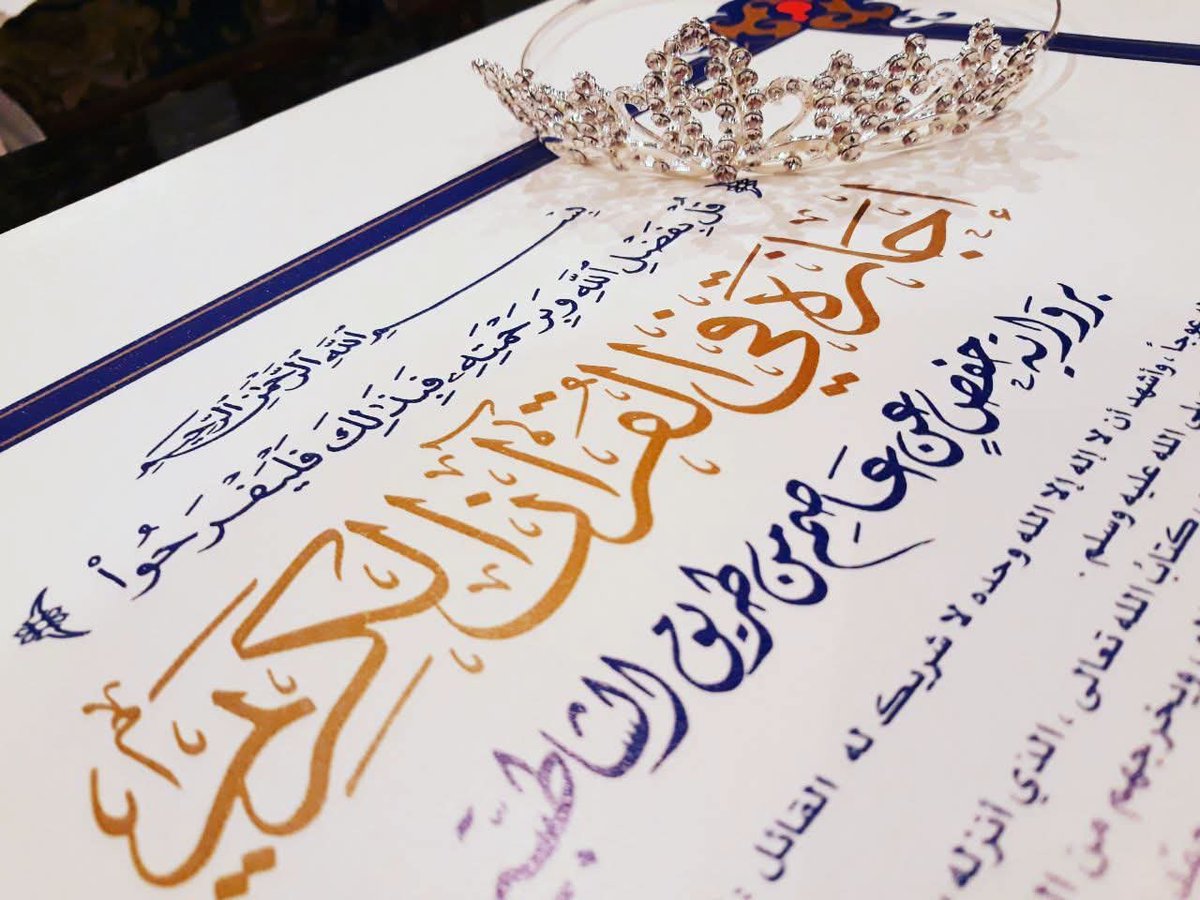 بِسْمِ ٱللَّهِ ٱلرَّحْمَٰنِ ٱلرَّحِيمِ
قُلْ بِفَضْلِ ٱللَّهِ وَبِرَحْمَتِهِۦ فَبِذَٰلِكَ فَلْيَفْرَحُوا۟
إجازة في القرآن الكريم
برواية حفص عن عاصم من طريق الشاطبية
عوجاً ، وأشهد أن لا إله إلا الله وحده لا شريك له القائل :
الله عليه وسلم .
كتاب الله تعالى ، الذي أنزله
ويخرجهم من